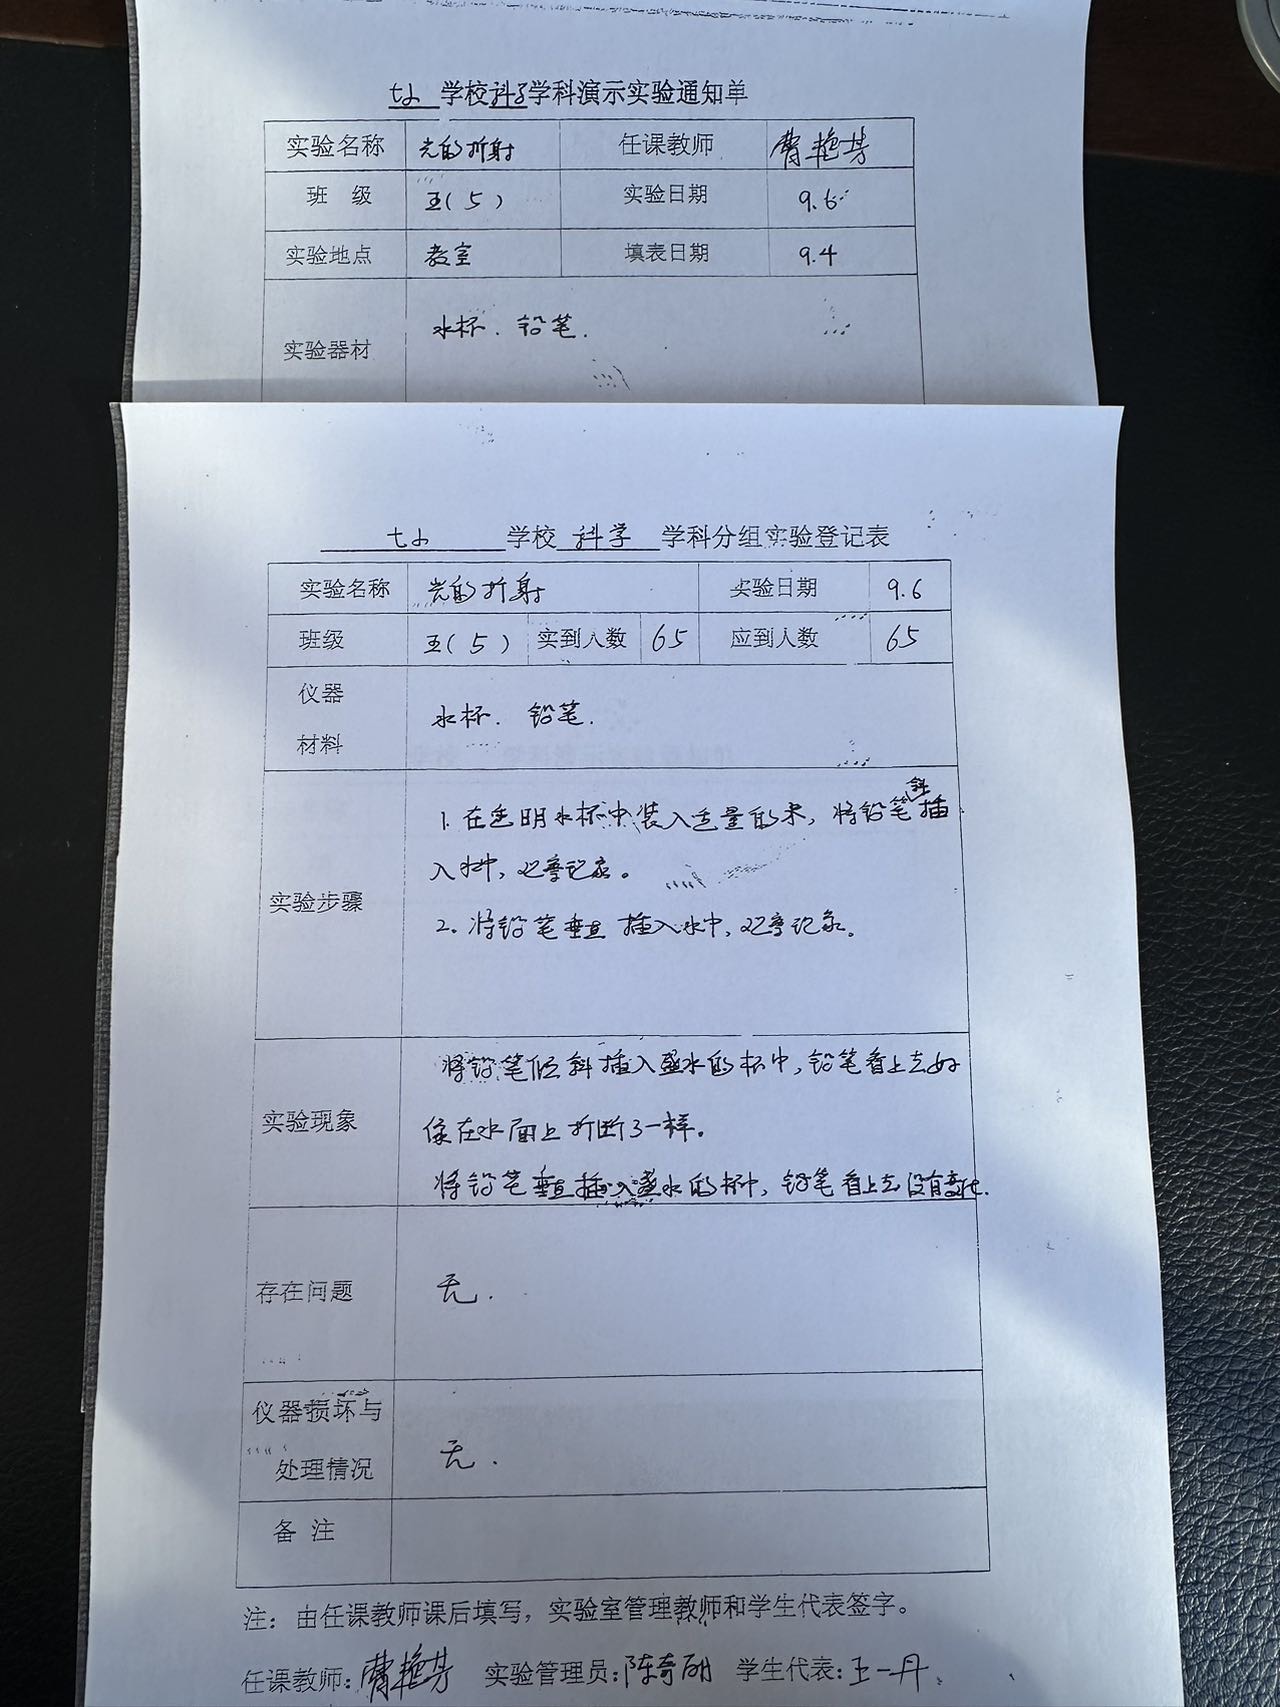 七小 学校科学学科演示实验通知单
实验名称 光的折射 任课教师 曹艳芳
班 级 五(5) 实验日期 9.6
实验地点 教室 填表日期 9.4
实验器材 水杯. 铅笔.
七小 学校 科学 学科分组实验登记表
实验名称 光的折射 实验日期 9.6
班级 五(5) 实到人数 65 应到人数 65
仪器
材料 水杯. 铅笔.
实验步骤
1. 在透明水杯中装入适量的水, 将铅笔斜插
入水中, 观察记录。
2. 将铅笔垂直插入水中, 观察记录。
实验现象
将铅笔倾斜插入盛水的杯中, 铅笔看上去好
像在水面上折断了一样。
将铅笔垂直插入盛水的杯中, 铅笔看上去没有变化.
存在问题 无.
仪器损坏与
处理情况 无.
备 注
注: 由任课教师课后填写, 实验室管理教师和学生代表签字。
任课教师: 曹艳芳 实验管理员: 陈奇丽 学生代表: 王一丹